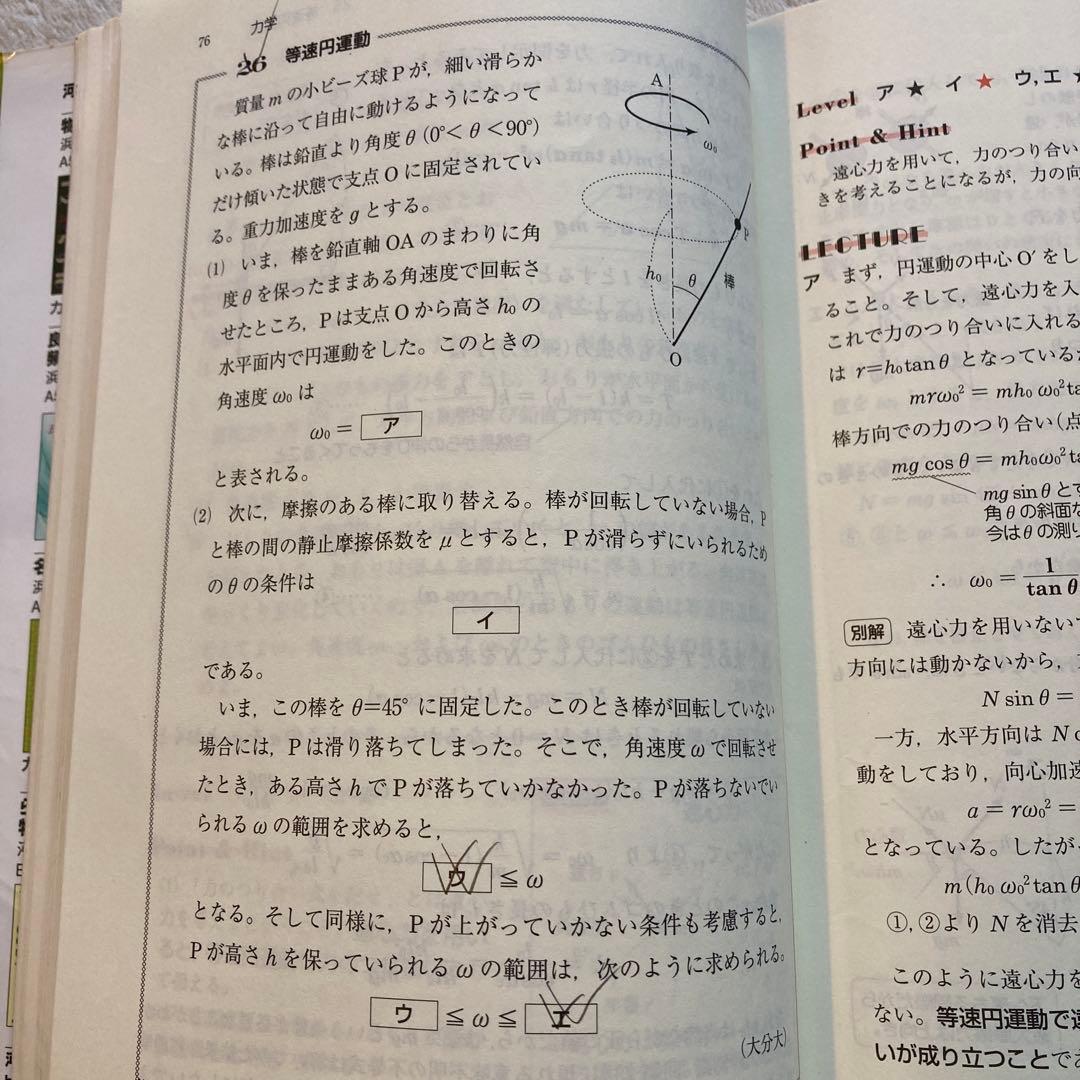 76 力学
26 等速円運動
質量 m の小ビーズ球 P が，細い滑らか
な棒に沿って自由に動けるようになって
いる。棒は鉛直より角度 θ (0°< θ <90°)
だけ傾いた状態で支点 O に固定されてい
る。重力加速度を g とする。
(1) いま，棒を鉛直軸 OA のまわりに角
度 θ を保ったままある角速度で回転さ
せたところ，P は支点 O から高さ h₀ の
水平面内で円運動をした。このときの
角速度 ω₀ は
ω₀ = ア
と表される。
A
ω₀
P
h₀
θ
棒
O
(2) 次に，摩擦のある棒に取り替える。棒が回転していない場合，P
と棒の間の静止摩擦係数を μ とすると，P が滑らずにいられるため
の θ の条件は
イ
である。
いま，この棒を θ=45° に固定した。このとき棒が回転していない
場合には，P は滑り落ちてしまった。そこで，角速度 ω で回転させ
たとき，ある高さ h で P が落ちていかなかった。P が落ちないでい
られる ω の範囲を求めると，
ウ ≦ ω
となる。そして同様に，P が上がっていかない条件も考慮すると，
P が高さ h を保っていられる ω の範囲は，次のように求められる。
ウ ≦ ω ≦ エ
(大分大)
Level ア ★ イ ★ ウ,エ
Point & Hint
遠心力を用いて，力のつり合い
きを考えることになるが，力の向
LECTURE
ア まず，円運動の中心 O′ をし
ること。そして，遠心力を入
これで力のつり合いに入れる
は r=h₀tanθ となっている
mrω₀² = mh₀ω₀²ta
棒方向での力のつり合い(点
mg cos θ = mh₀ω₀²ta
mg sin θ とす
角 θ の斜面な
今は θ の測り
∴ ω₀ = 1/tan θ
別解 遠心力を用いない
方向には動かないから，
N sin θ =
一方，水平方向は N c
動をしており，向心加速
a = rω₀² =
となっている。したが
m(h₀ω₀²tan θ
①，②より N を消去
このように遠心力を
ない。等速円運動で遠
いが成り立つことで